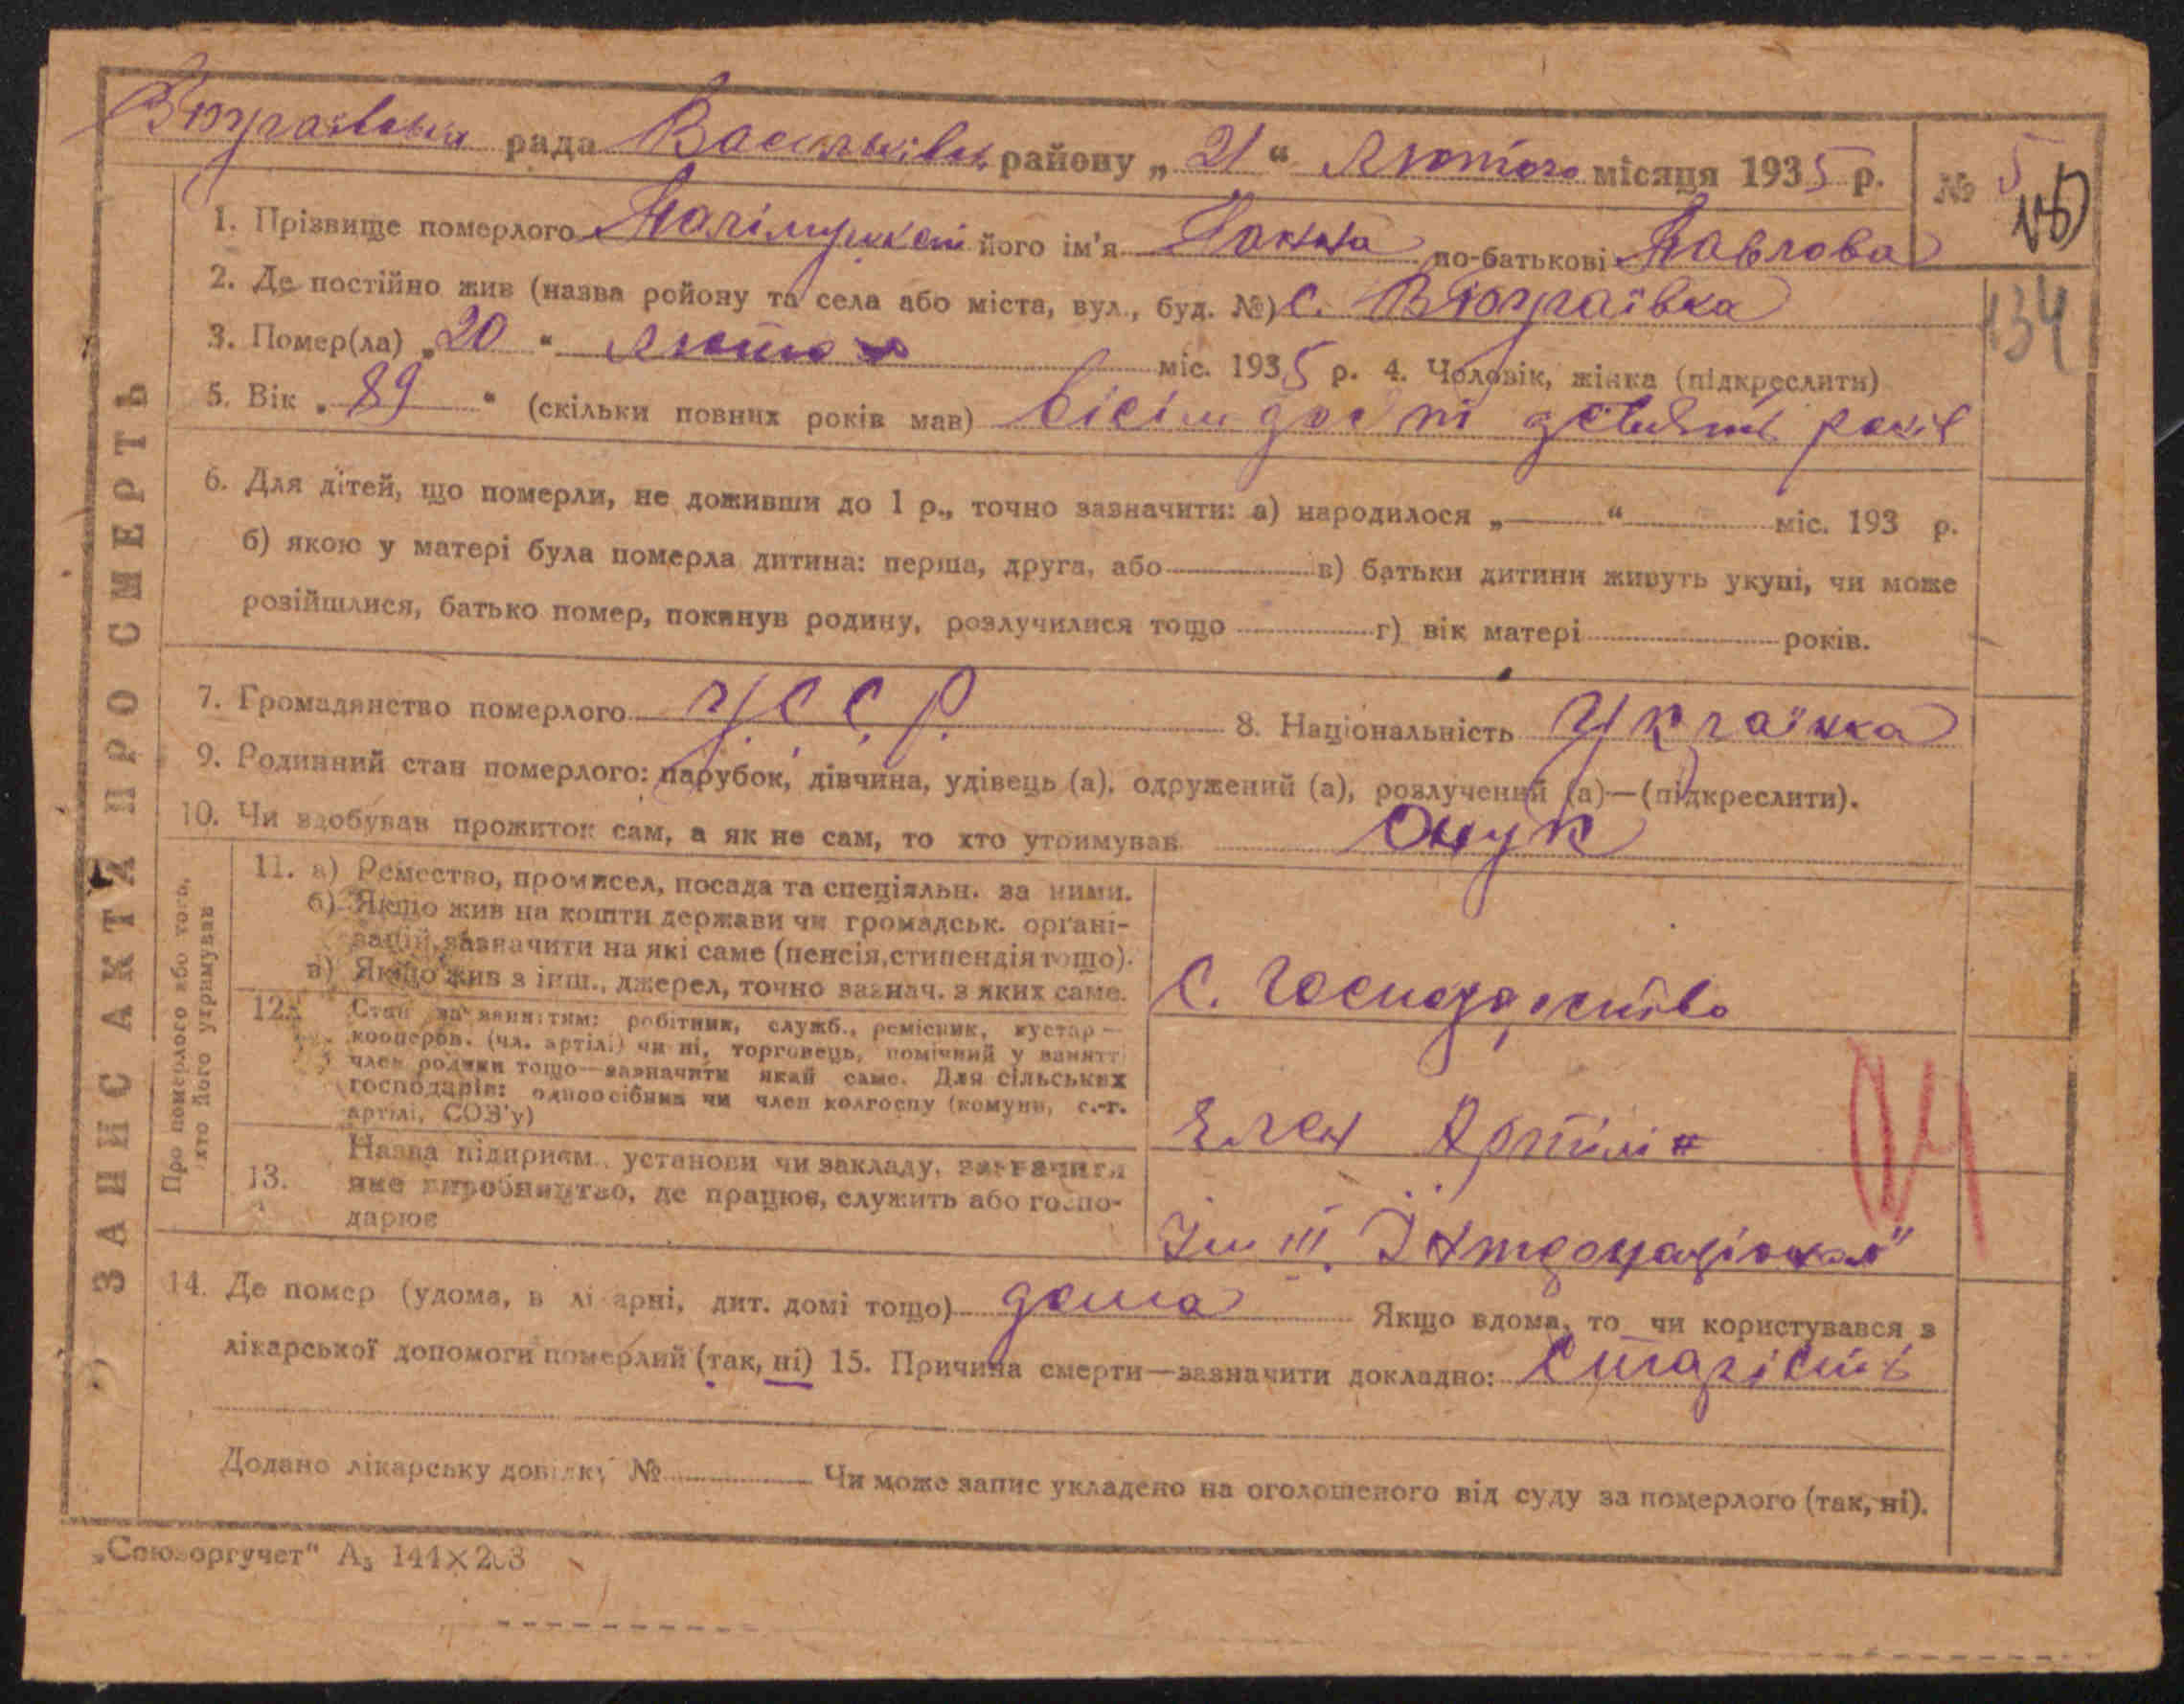 рада Васильків. району „ 21 “ лютого місяця 1935 р. № 5
1. Прізвище померлого його ім'я Ганна по-батькові Павлова
2. Де постійно жив (назва ройону та села або міста, вул., буд. №) С.
134
3. Помер(ла) „20 “ лютого міс. 1935 р. 4. Чоловік, жінка (підкреслити)
5. Вік „ 89 “ (скільки повних років мав) вісімдесят девять років
6. Для дітей, що померли, не доживши до 1 р., точно зазначити: а) народилося „ “ міс. 193 р.
б) якою у матері була померла дитина: перша, друга, або в) батьки дитини живуть укупі, чи може
розійшлися, батько помер, покинув родину, розлучилися тощо г) вік матері років.
7. Громадянство померлого У.С.С.Р. 8. Національність Українка
9. Родинний стан померлого: парубок, дівчина, удівець (а), одружений (а), розлучений (а)—(підкреслити).
10. Чи здобував прожиток сам, а як не сам, то хто утримував Онук
Про померлого або того, хто його утримував
11. а) Ремество, промисел, посада та спеціяльн. за ними.
б) Якщо жив на кошти держави чи громадськ. органі-
зацій, зазначити на які саме (пенсія, стипендія тощо).
в) Якщо жив з інш., джерел, точно зазнач. з яких саме.
С. Господарство
12. Стан за заняттям: робітник, служб., ремісник, кустар —
кооперов. (чл. артілі) чи ні, торговець, помічний у занятті
член родини тощо—зазначити який саме. Для сільських
господарів: одноосібник чи член колгоспу (комуни, с.-г.
артілі, СОЗ'у)
Член Артілі
13. Назва підприєм., установи чи закладу, зазначити
яке виробництво, де працює, служить або госпо-
дарює
Ім III. Інтернаціонал"
14. Де помер (удома, в лікарні, дит. домі тощо) дома Якщо вдома, то чи користувався з
лікарської допомоги померлий (так, ні) 15. Причина смерти—зазначити докладно: Старість
Додано лікарську довідку № Чи може запис укладено на оголошеного від суду за померлого (так, ні).
ЗАПИС АКТА ПРО СМЕРТЬ
„Союзоргучет“ А₅ 144×203